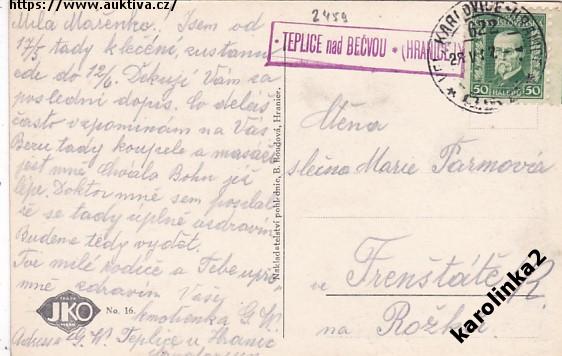 https://www.auktiva.cz/
Milá Mařenko! Jsem od
17/5 tady k léčení zustanu
zde do 12/6. Děkuji Vám za
poslední dopis. Co děláš
často vzpomínám na Vás
Beru tady koupele a masáže
jest mně Chvála Bohu již
lépe. Doktor mně sem poslal
že se tady uplně uzdravím
Budeme tedy vydět.
Tvé milé rodiče a Tebe
mně zdravím Vaše
G. W.
Adresa G. W. Teplice u Hranic
JKO
No. 16.
Nakladatelství pohlednic, B. Hranice.
2459
TEPLICE nad BEČVOU • (HRANICE)
KARLOVICE
50 HALÉŘŮ 50
slečna Marie Parmová
ve Frenštátě R.
na
karolinka2